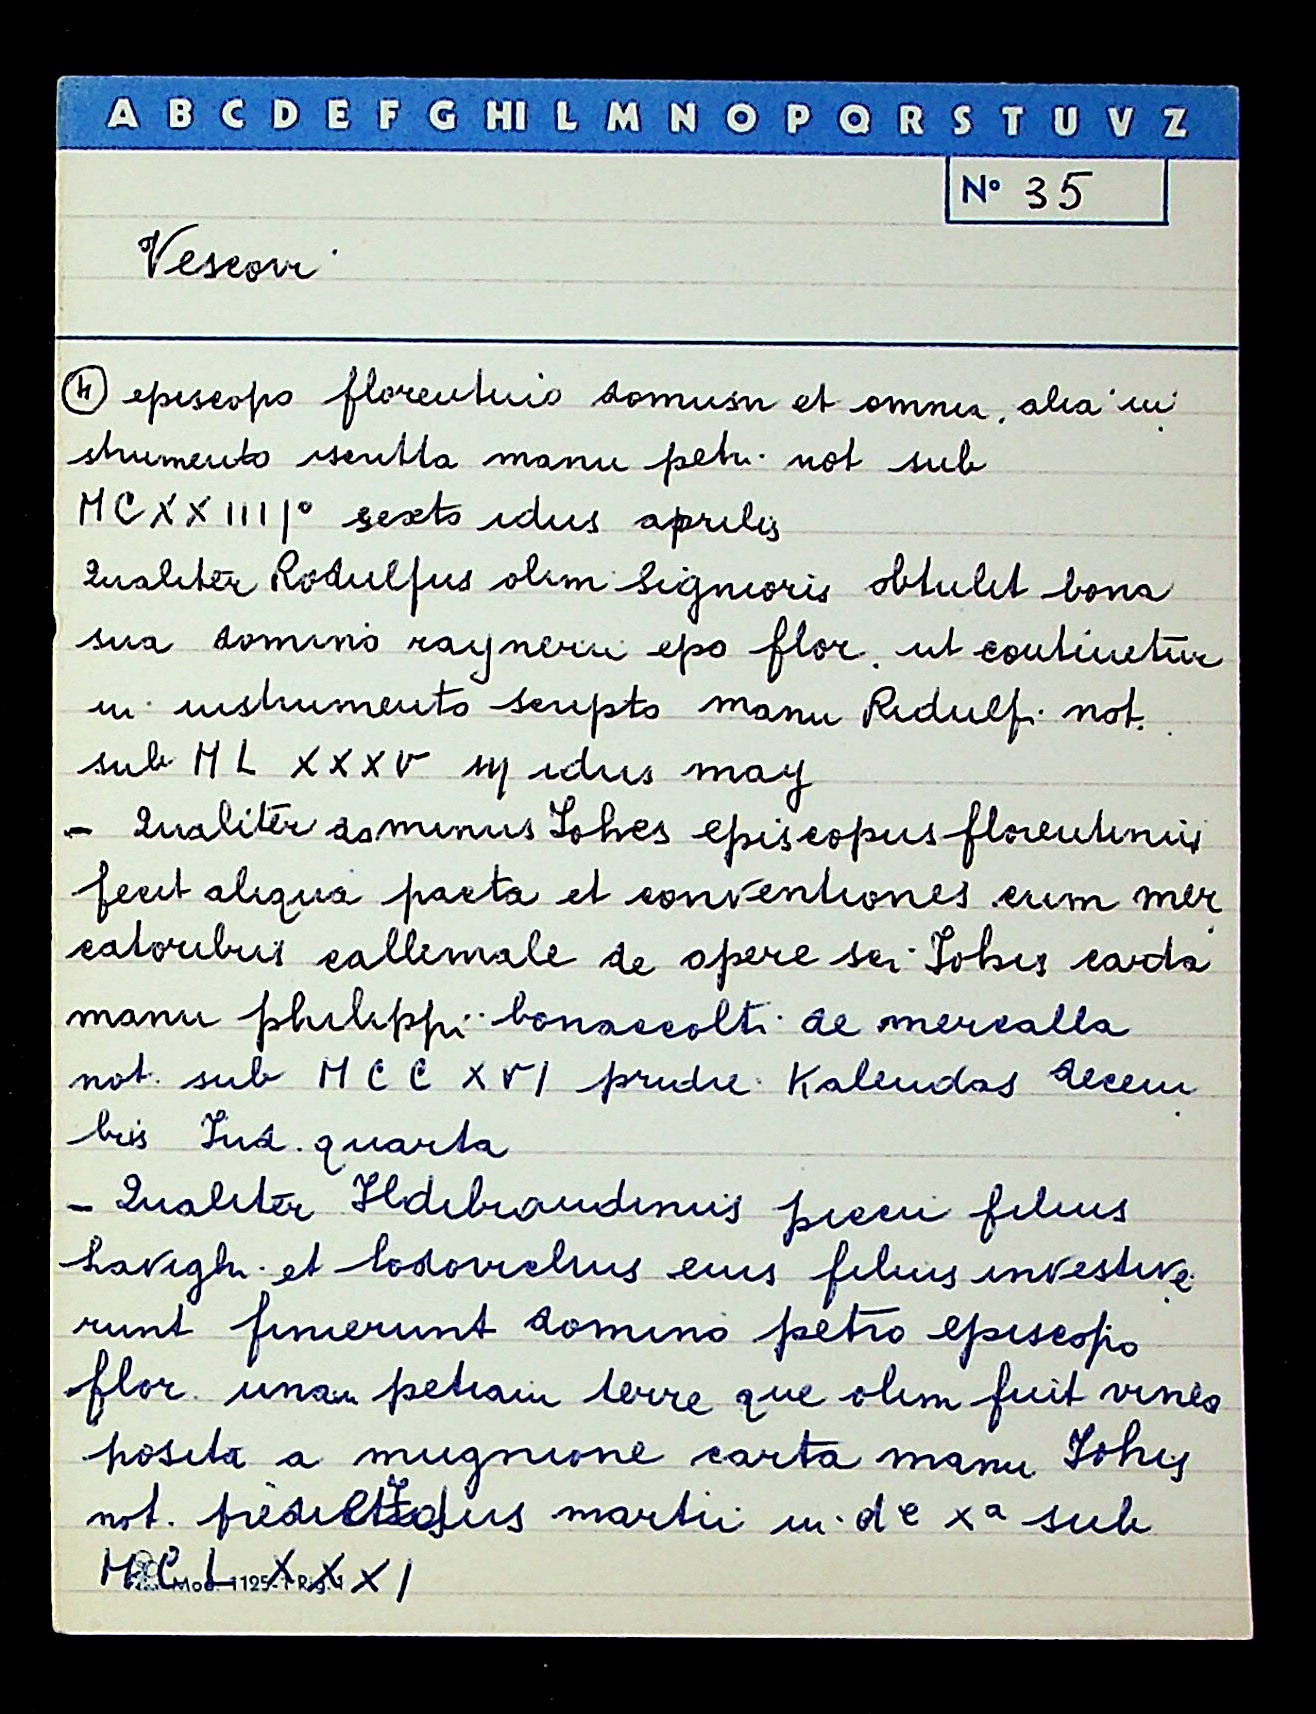 A B C D E F G HI L M N O P Q R S T U V Z
N° 35
Vescovi
4 episcopo florentino domum et omnia alia in
strumento iscritta manu petri not sub
MCXXIIII° sexto idus aprilis
Qualiter Rodulfus olim Signioris obtulit bona
sua domino raynerii epo flor. ut continetur
in instrumento scripto manu Ridulfi not.
sub MLXXXV idus may
- Qualiter dominus Johes episcopus florentinus
fecit aliqua pacta et conventiones cum mer
catoribus callimale de opere sci Johis carda
manu philippi bonaccolti de mercalla
not. sub MCCXVI pridie Kalendas decem
bris Ind. quarta
- Qualiter Ildibrandinus piccii filius
et lodovichus eius filius investive
runt finierunt domino petro episcopo
flor. unam petiam terre que olim fuit vinea
posita a mugnione carta manu Johis
not. Idus martii in de xa sub
MCLXXXI
Mod. 1125-1 Rig. 1